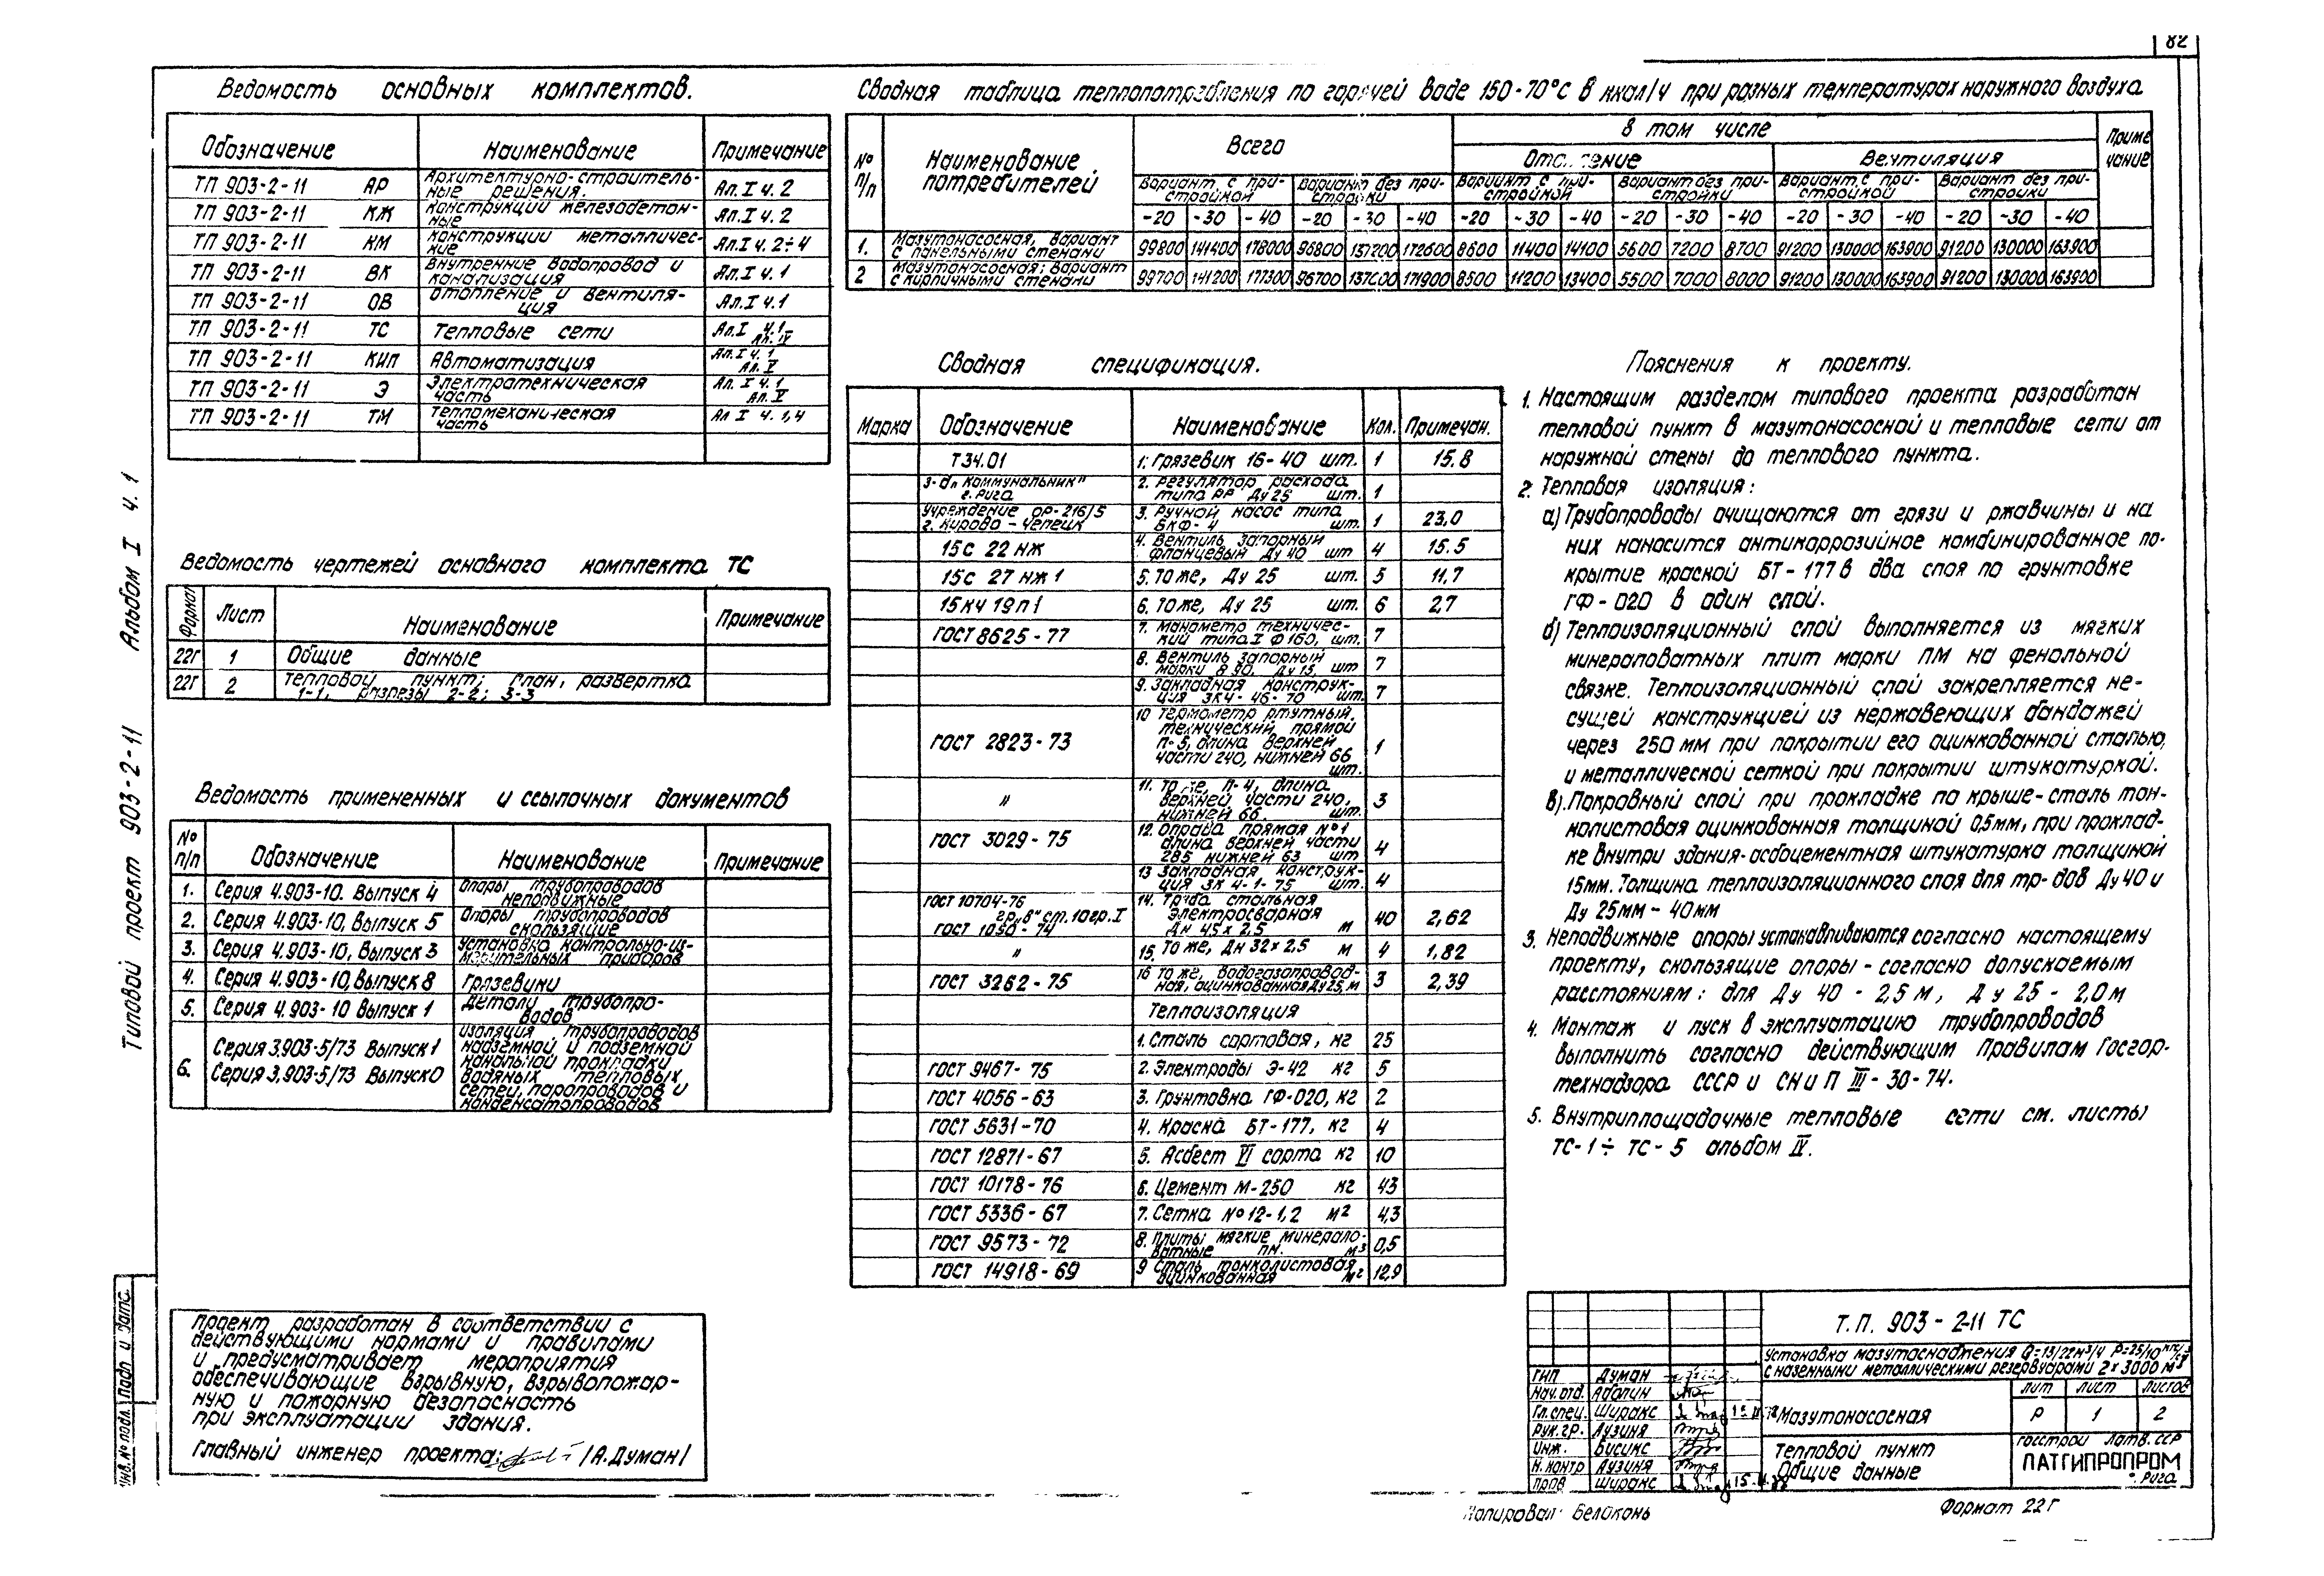 82
Ведомость основных комплектов.
Обозначение Наименование Примечание
ТП 903-2-11 АР Архитектурно-строитель-
ные решения. Ал. I ч. 2
ТП 903-2-11 КЖ Конструкции железобетон-
ные Ал. I ч. 2
ТП 903-2-11 КМ Конструкции металличес-
кие Ал. I ч. 2÷4
ТП 903-2-11 ВК Внутренние водопровод и
канализация Ал. I ч. 1
ТП 903-2-11 ОВ Отопление и вентиля-
ция Ал. I ч. 1
ТП 903-2-11 ТС Тепловые сети Ал. I ч. 1-
Ал. IV
ТП 903-2-11 КИП Автоматизация Ал. I ч. 1
Ал. V
ТП 903-2-11 Э Электротехническая
часть Ал. I ч. 1
Ал. V
ТП 903-2-11 ТМ Тепломеханическая
часть Ал I ч. 1,4
Ведомость чертежей основного комплекта ТС
Формат Лист Наименование Примечание
22Г 1 Общие данные
22Г 2 Тепловой пункт; план, развертка
1-1, разрезы 2-2; 3-3
Ведомость примененных и ссылочных документов
№
п/п Обозначение Наименование Примечание
1. Серия 4.903-10. Выпуск 4 Опоры трубопроводов
неподвижные
2. Серия 4.903-10, Выпуск 5 Опоры трубопроводов
скользящие
3. Серия 4.903-10, Выпуск 3 Установка контрольно-из-
мерительных приборов
4. Серия 4.903-10, Выпуск 8 Грязевики
5. Серия 4.903-10 Выпуск 1 Детали трубопро-
водов
6. Серия 3.903-5/73 Выпуск 1
Серия 3.903-5/73 Выпуск 0
Изоляция трубопроводов
надземной и подземной
канальной прокладки
водяных тепловых
сетей, паропроводов и
конденсатопроводов
Проект разработан в соответствии с
действующими нормами и правилами
и предусматривает мероприятия
обеспечивающие взрывную, взрывопожар-
ную и пожарную безопасность
при эксплуатации здания.
Главный инженер проекта: /А.Думан/
Типовой проект 903-2-11 Альбом I ч. 1
Инв. № подл. Подп и дата.
Сводная таблица теплопотребления по горячей воде 150-70°С в ккал/ч при разных температурах наружного воздуха
№
п/п Наименование
потребителей Всего В том числе Приме
чание
Отопление Вентиляция
Вариант с при-
стройкой Вариант без при-
стройки Вариант с при-
стройкой Вариант без при-
стройки Вариант с при-
стройкой Вариант без при-
стройки
-20 -30 -40 -20 -30 -40 -20 -30 -40 -20 -30 -40 -20 -30 -40 -20 -30 -40
1. Мазутонасосная, вариант
с панельными стенами 99800 141400 178000 96800 137200 172600 8600 11400 14100 5600 7200 8700 91200 130000 163900 91200 130000 163900
2 Мазутонасосная; вариант
с кирпичными стенами 99700 141200 177300 96700 137000 171900 8500 11200 13400 5500 7000 8000 91200 130000 163900 91200 130000 163900
Сводная спецификация.
Марка Обозначение Наименование Кол. Примечан.
Т34.01 1. Грязевик 16-40 шт. 1 15.8
З-д „Коммунальник"
г. Рига 2. Регулятор расхода
типа РР Ду 25 шт. 1
Учреждение ОР-216/5
г. Кирово-Чепецк 3. Ручной насос типа
БКФ-4 шт. 1 23,0
15с 22 нж 4. Вентиль запорный
фланцевый Ду 40 шт 4 15.5
15с 27 нж 1 5. То же, Ду 25 шт. 5 11,7
15кч 19п1 6. То же, Ду 25 шт 6 2,7
ГОСТ 8625-77 7. Манометр техничес-
кий типа I Ф 160, шт. 7
8. Вентиль запорный
марки В 90, Ду 15, шт 7
9. Закладная конструк-
ция ЗК4-46-70 шт. 7
ГОСТ 2823-73 10 Термометр ртутный,
технический прямой
П-5, длина верхней
части 240, нижней 66
шт. 1
" 11. То же, П-4, длина
верхней части 240,
нижней 66. шт. 3
ГОСТ 3029-75 12. Оправа прямая №1
длина верхней части
285 нижней 63 шт 4
13 Закладная конструк-
ция ЗК 4-1-75 шт. 4
ГОСТ 10704-76
гр. „В" ст. 10 гр. I
ГОСТ 1050-74 14. Труба стальная
электросварная
Дн 45х2.5 м 40 2,62
" 15. То же, Дн 32х2.5 м 4 1,82
ГОСТ 3262-75 16 То же, водогазопровод-
ная, оцинкованная Ду 25, м 3 2,39
Теплоизоляция
1. Сталь сортовая, кг 25
ГОСТ 9467-75 2. Электроды Э-42 кг 5
ГОСТ 4056-63 3. Грунтовка ГФ-020, кг 2
ГОСТ 5631-70 4. Краска БТ-177, кг 4
ГОСТ 12871-67 5. Асбест VI сорта кг 10
ГОСТ 10178-76 6. Цемент М-250 кг 43
ГОСТ 5336-67 7. Сетка №12-1,2 м² 4,3
ГОСТ 9573-72 8. Плиты мягкие минерало-
ватные ПМ. м³ 0,5
ГОСТ 14918-69 9 Сталь тонколистовая
оцинкованная м² 12,9
Пояснения к проекту.
1. Настоящим разделом типового проекта разработан
тепловой пункт в мазутонасосной и тепловые сети от
наружной стены до теплового пункта.
2. Тепловая изоляция:
а) Трубопроводы очищаются от грязи и ржавчины и на
них наносится антикоррозийное комбинированное по-
крытие краской БТ-177 в два слоя по грунтовке
ГФ-020 в один слой.
б) Теплоизоляционный слой выполняется из мягких
минераловатных плит марки ПМ на фенольной
связке. Теплоизоляционный слой закрепляется не-
сущей конструкцией из нержавеющих бандажей
через 250 мм при покрытии его оцинкованной сталью,
и металлической сеткой при покрытии штукатуркой.
в). Покровный слой при прокладке по крыше-сталь тон-
колистовая оцинкованная толщиной 0,5мм, при проклад-
ке внутри здания-асбоцементная штукатурка толщиной
15мм. Толщина теплоизоляционного слоя для тр-дов Ду 40 и
Ду 25мм - 40мм
3. Неподвижные опоры устанавливаются согласно настоящему
проекту, скользящие опоры - согласно допускаемым
расстояниям: для Ду 40 - 2,5 м, Ду 25 - 2,0м
4. Монтаж и пуск в эксплуатацию трубопроводов
выполнить согласно действующим Правилам Госгор-
технадзора СССР и СНиП III-30-74.
5. Внутриплощадочные тепловые сети см. листы
ТС-1÷ТС-5 альбом IV.
Т.П. 903-2-11 ТС
Установка мазутоснабжения Q=13/22м³/ч Р=25/10
с наземными металлическими резервуарами 2х3000 м³
ГИП Думан
Нач. отд. Аболин
Гл.спец. Ширакс
Рук. гр. Лузиня
Инж. Бисикс
Н. контр Лузиня
Пров Ширакс
Мазутонасосная
лит лист листов
Р 1 2
Тепловой пункт
Общие данные
Госстрой Латв. ССР
ЛАТГИПРОПРОМ
г. Рига
Копировал: Беликонь Формат 22Г